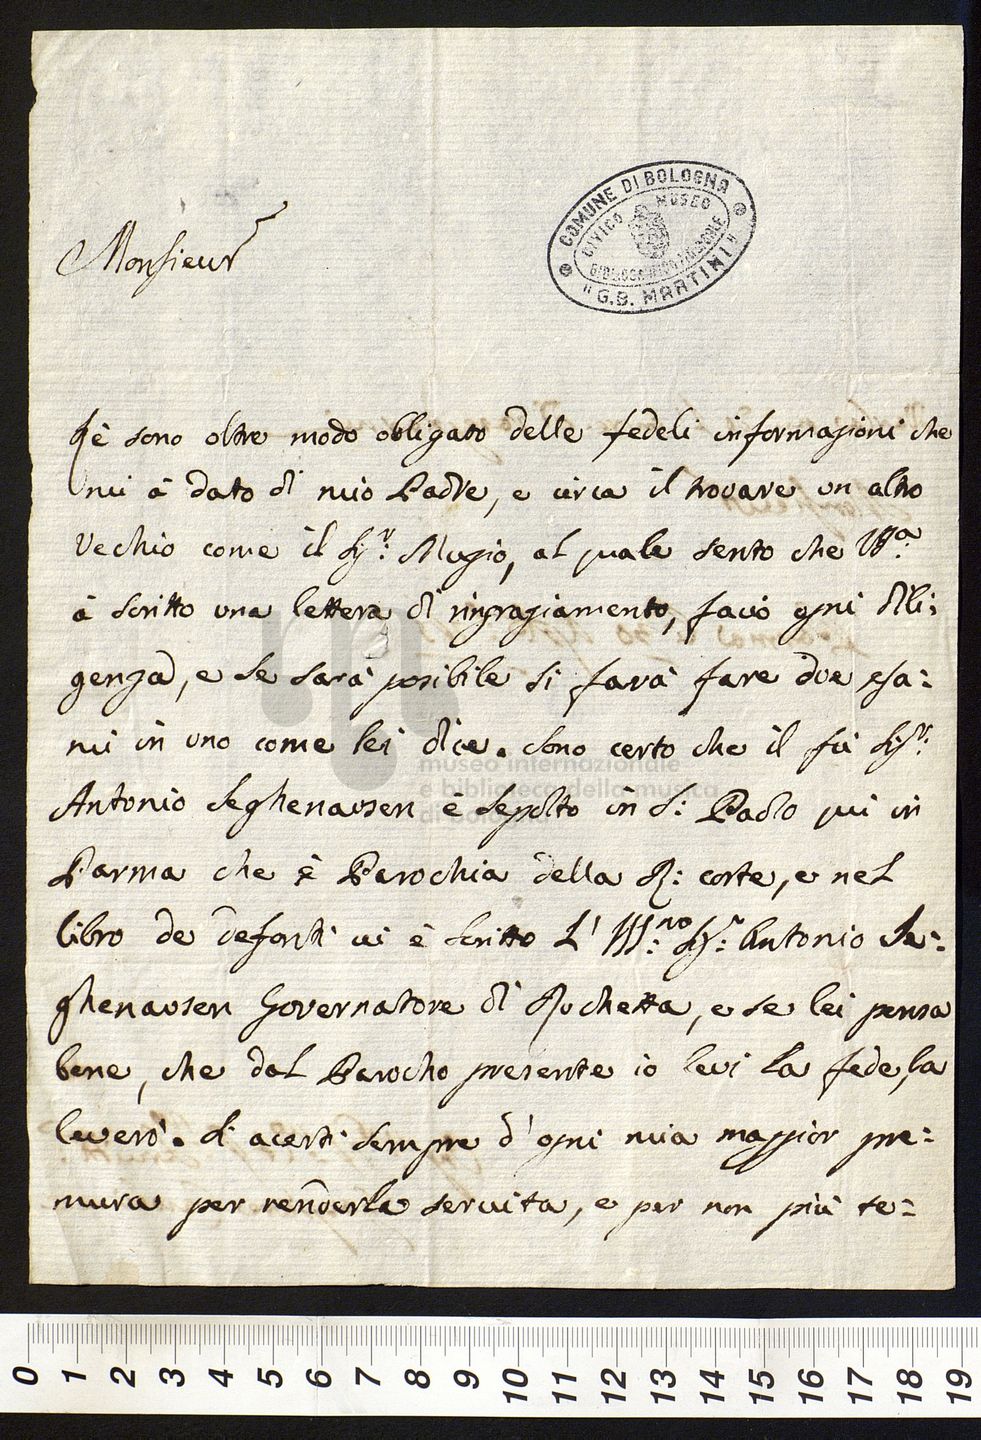 COMUNE DI BOLOGNA
CIVICO MUSEO
BIBLIOGRAFICO MUSICALE
"G.B. MARTINI"
Monsieur
Lè sono oltre modo obligato delle fedeli informazioni che
mi à dato di mio Padre, e circa il trovare un altro
Vechio come il Sigr: Muzio, al quale sento che VSa:
à scritto una lettera di ringraziamento, faciò ogni dili:
genza, e se sarà posibile si farà fare due esa:
mi in uno come lei dice. Sono certo che il fù Sigr:
Antonio Seghenausen è sepolto in S: Paolo qui in
Parma che è Parochia della R: corte, e nel
libro de defonti vi è scritto L' Illmo: Sigr: Antonio Se:
ghenausen Governatore di Rochetta, e se lei pensa
bene, che dal Parocho presente io levi La fede, la
leverò. Si acerti sempre d'ogni mia maggior pre:
mura per renderla servita, e per non più te:
museo internazionale
e biblioteca della musica
di Bologna
0 1 2 3 4 5 6 7 8 9 10 11 12 13 14 15 16 17 18 19